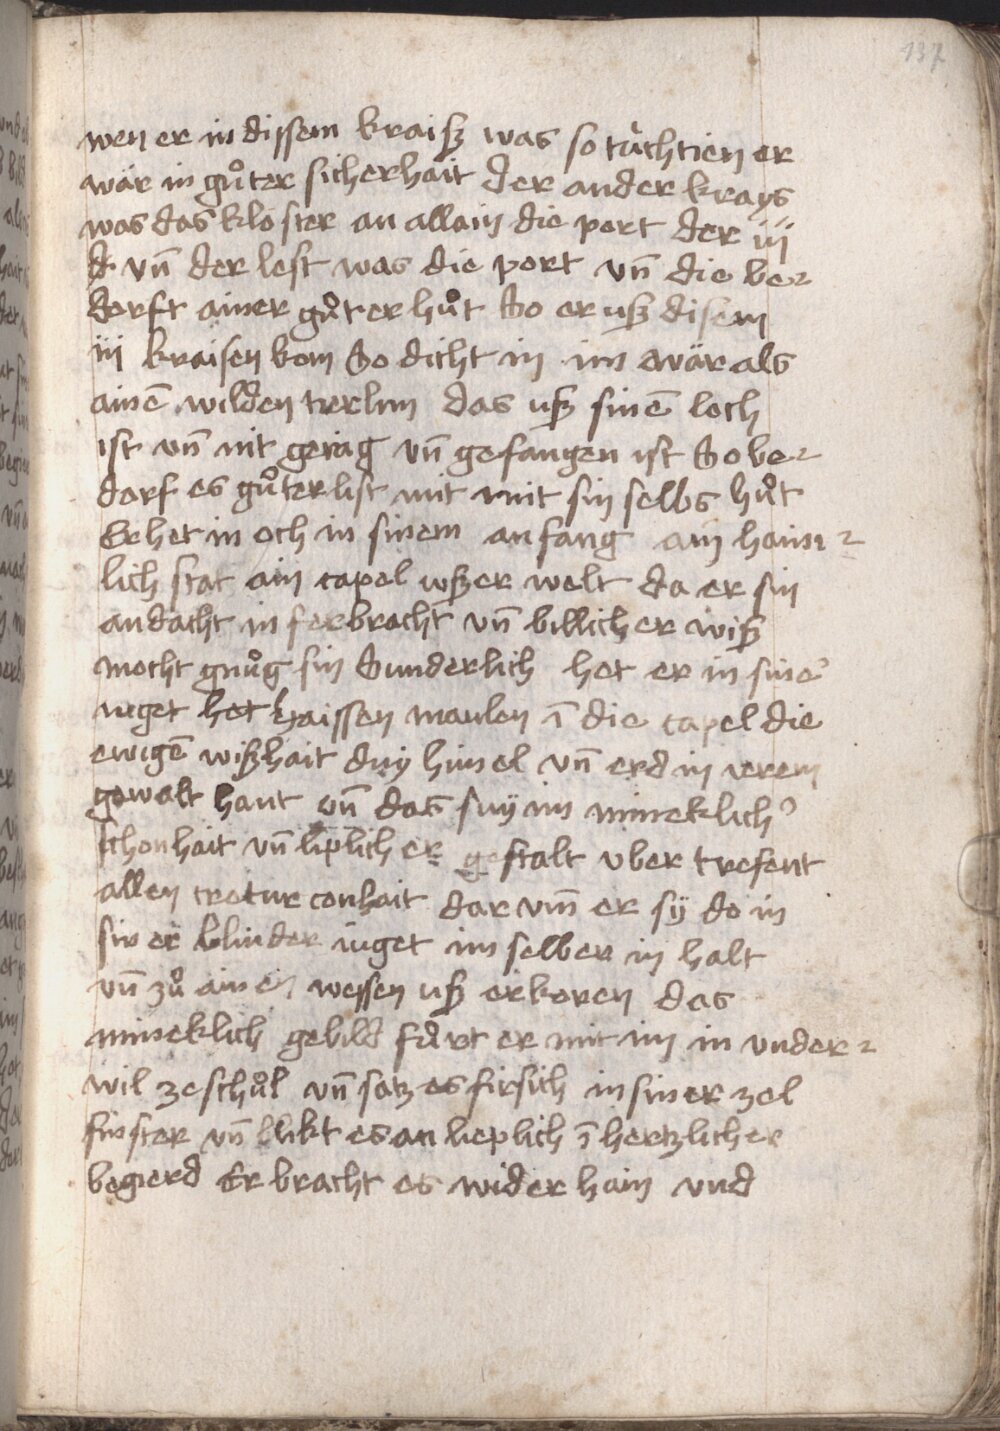 137
wen er in dissem kraisz was so tuͤchtien er
wär in guͦter sicherhait der ander krays
was das kloster an allain die port der iij
d vn̄ der lest was die port vn̄ die be⸗
dorft ainer guͦter huͦt So er usz disem
iij kraisen kom So dicht in im wär als
ainē wilden tierlin das usz sinē loch
ist vn̄ nit geiag vn̄ gefangen ist So be⸗
dorf es guͦter list mit mit sin selbs huͦt
Er het in och in sinem anfang ain haim⸗
lich stat ain capel uszer welt da er sin
andacht in ferbracht vn̄ billicher wisz
mocht gnuͦg sin Sunderlich het er in sineʼ
iuget het haissen maulen ī die capel die
ewigē wiszhait duy himel vn̄ erd in irem
gewalt haut vn̄ das suy im mineklichʼ
schonhait vn̄ liplich er gestalt vber trefent
allen creatur conhait dar vm̄ er sy do in
siner blinder iuget im selber in halt
vn̄ zuͦ ainen wessen usz erkoren das
mineklich gebild fuͦrt er mit im in vnder⸗
wil ze schuͦl vn̄ satz es fir sich in siner zel
finster vn̄ blikt es an lieplich ī hertzlicher
begierd Er bracht es wider hain vnd